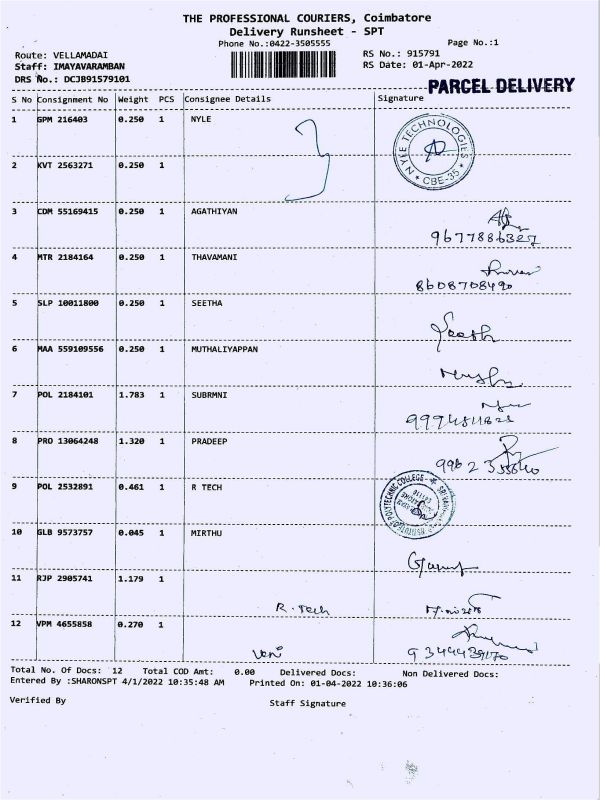 THE PROFESSIONAL COURIERS, Coimbatore
Delivery Runsheet - SPT
Phone No.:0422-3505555
Page No.:1
Route: VELLAMADAI
RS No.: 915791
Staff: IMAYAVARAMBAN
RS Date: 01-Apr-2022
DRS No.: DCJB91579101
PARCEL DELIVERY
S No Consignment No Weight PCS Consignee Details Signature
1 GPM 216403 0.250 1 NYLE
NYLE TECHNOLOGIES
CBE-35
2 KVT 2563271 0.250 1
3 CDM 55169415 0.250 1 AGATHIYAN
9677886327
4 MTR 2184164 0.250 1 THAVAMANI
8608708490
5 SLP 10011800 0.250 1 SEETHA
6 MAA 559109556 0.250 1 MUTHALIYAPPAN
7 POL 2184101 1.783 1 SUBRMNI
8 PRO 13064248 1.320 1 PRADEEP
9 POL 2532891 0.461 1 R TECH
POLYTECHNIC COLLEGE
10 GLB 9573757 0.045 1 MIRTHU
11 RJP 2905741 1.179 1
R. Tech
12 VPM 4655858 0.270 1
Veni
Total No. Of Docs: 12 Total COD Amt: 0.00 Delivered Docs: Non Delivered Docs:
Entered By :SHARONSPT 4/1/2022 10:35:48 AM Printed On: 01-04-2022 10:36:06
Verified By
Staff Signature